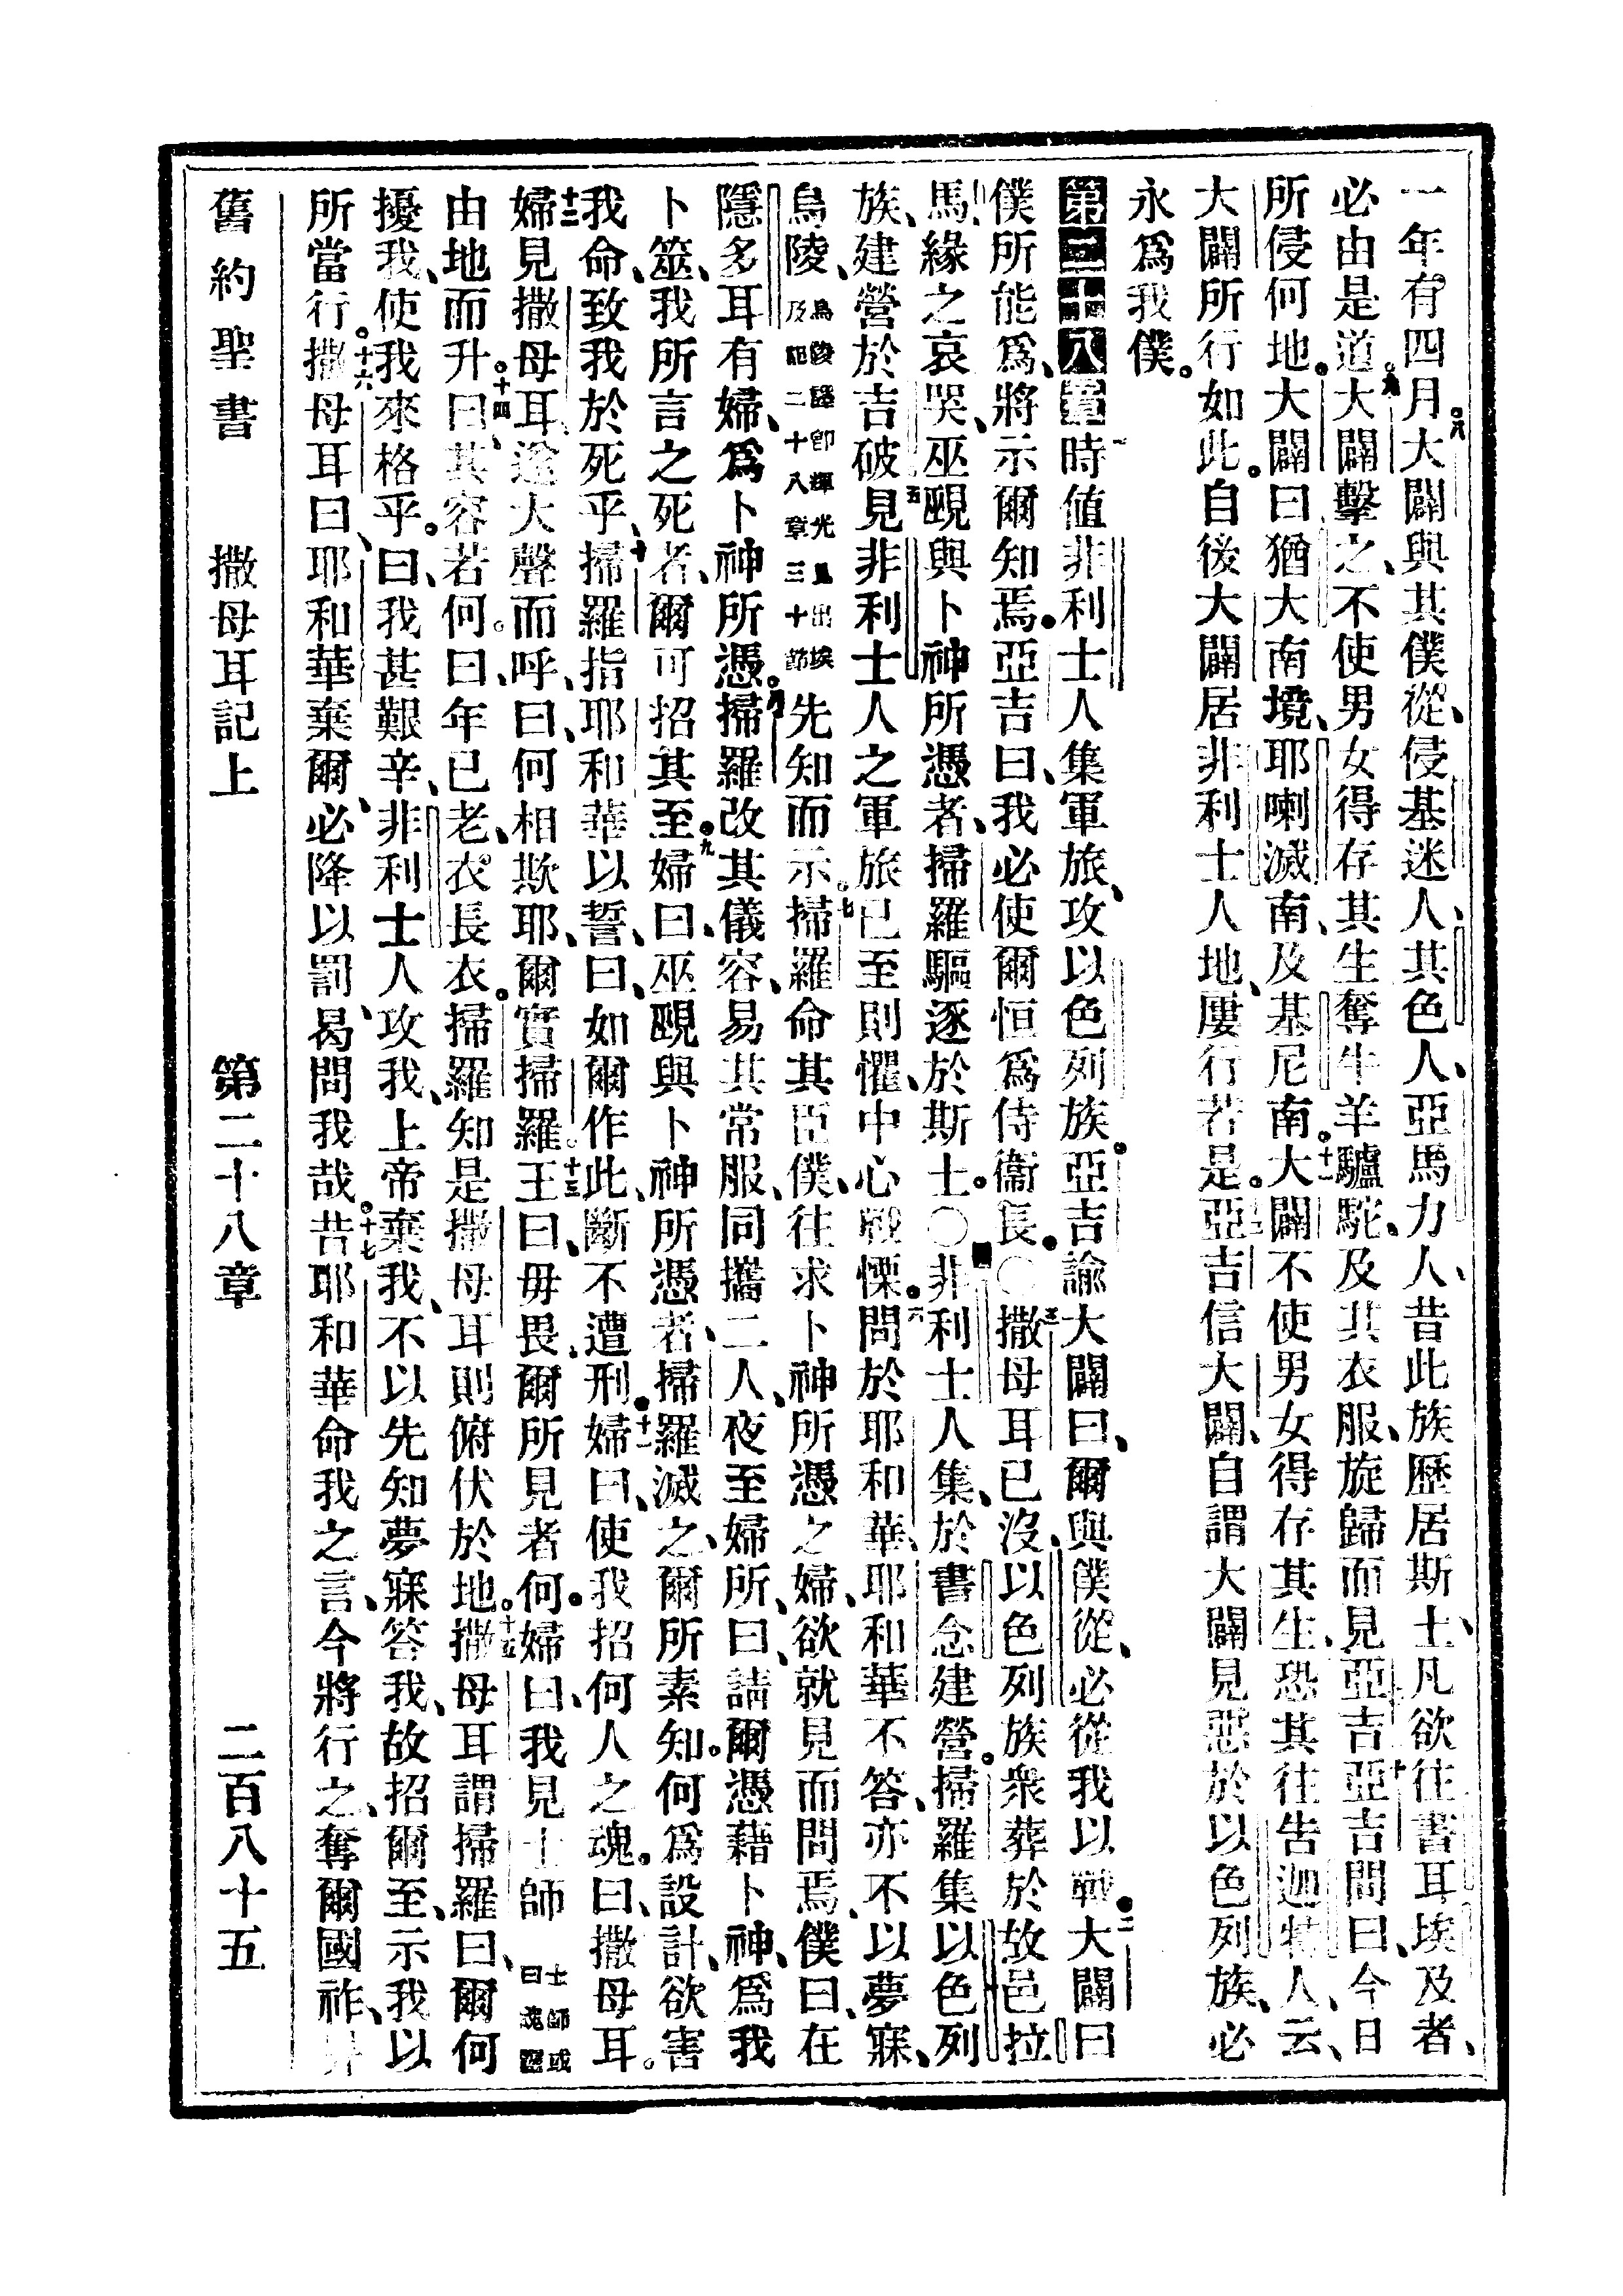 一年有四月、大闢與其僕從、侵基述人、其色人、亞馬力人、昔此族歷居斯土、凡欲往書耳埃及者、
必由是道。大闢擊之、不使男女得存其生、奪牛羊驢駝、及其衣服、旋歸而見亞吉。亞吉問曰、今日
所侵何地。大闢曰、猶大南境、耶喇滅南、及基尼南。大闢不使男女得存其生、恐其往告迦特人、云、
大闢所行如此。自後大闢居非利士人地、屢行若是。亞吉信大闢、自謂大闢見惡於以色列族、必
永爲我僕。
第二十八章 時值非利士人集軍旅、攻以色列族。亞吉諭大闢曰、爾與僕從、必從我以戰。大闢曰
僕所能爲、將示爾知焉。亞吉曰、我必使爾恒爲侍衞長。○撒母耳已沒、以色列族衆葬於故邑拉
馬、緣之哀哭、巫覡與卜神所憑者、掃羅驅逐於斯土。○非利士人集、於書念建營。掃羅集以色列
族、建營於吉破、見非利士人之軍旅已至則懼、中心戰慄。問於耶和華、耶和華不答、亦不以夢寐、
烏陵、烏陵譯卽輝光見出埃及記二十八章三十節先知而示。掃羅命其臣僕、往求卜神所憑之婦、欲就見而問焉、僕曰、在
隱多耳有婦、爲卜神所憑。掃羅改其儀容、易其常服、同攜二人、夜至婦所、曰、請爾憑藉卜神、爲我
卜筮、我所言之死者、爾可招其至。婦曰、巫覡與卜神所憑者、掃羅滅之、爾所素知。何爲設計、欲害
我命、致我於死乎、掃羅指耶和華以誓、曰、如爾作此、斷不遭刑。婦曰、使我招何人之魂。曰、撒母耳。
婦見撒母耳、遂大聲而呼、曰、何相欺耶、爾實掃羅。王曰、毋畏、爾所見者何。婦曰、我見士師士師或曰魂靈
由地而升。曰、其容若何。曰、年已老、衣長衣。掃羅知是撒母耳、則俯伏於地。撒母耳謂掃羅曰、爾何
擾我、使我來格乎。曰、我甚艱辛、非利士人攻我、上帝棄我、不以先知夢寐答我、故招爾至、示我以
所當行。撒母耳曰、耶和華棄爾、必降以罰、曷問我哉。昔耶和華命我之言、今將行之、奪爾國祚、
舊約聖書 撒母耳記上 第二十八章 二百八十五